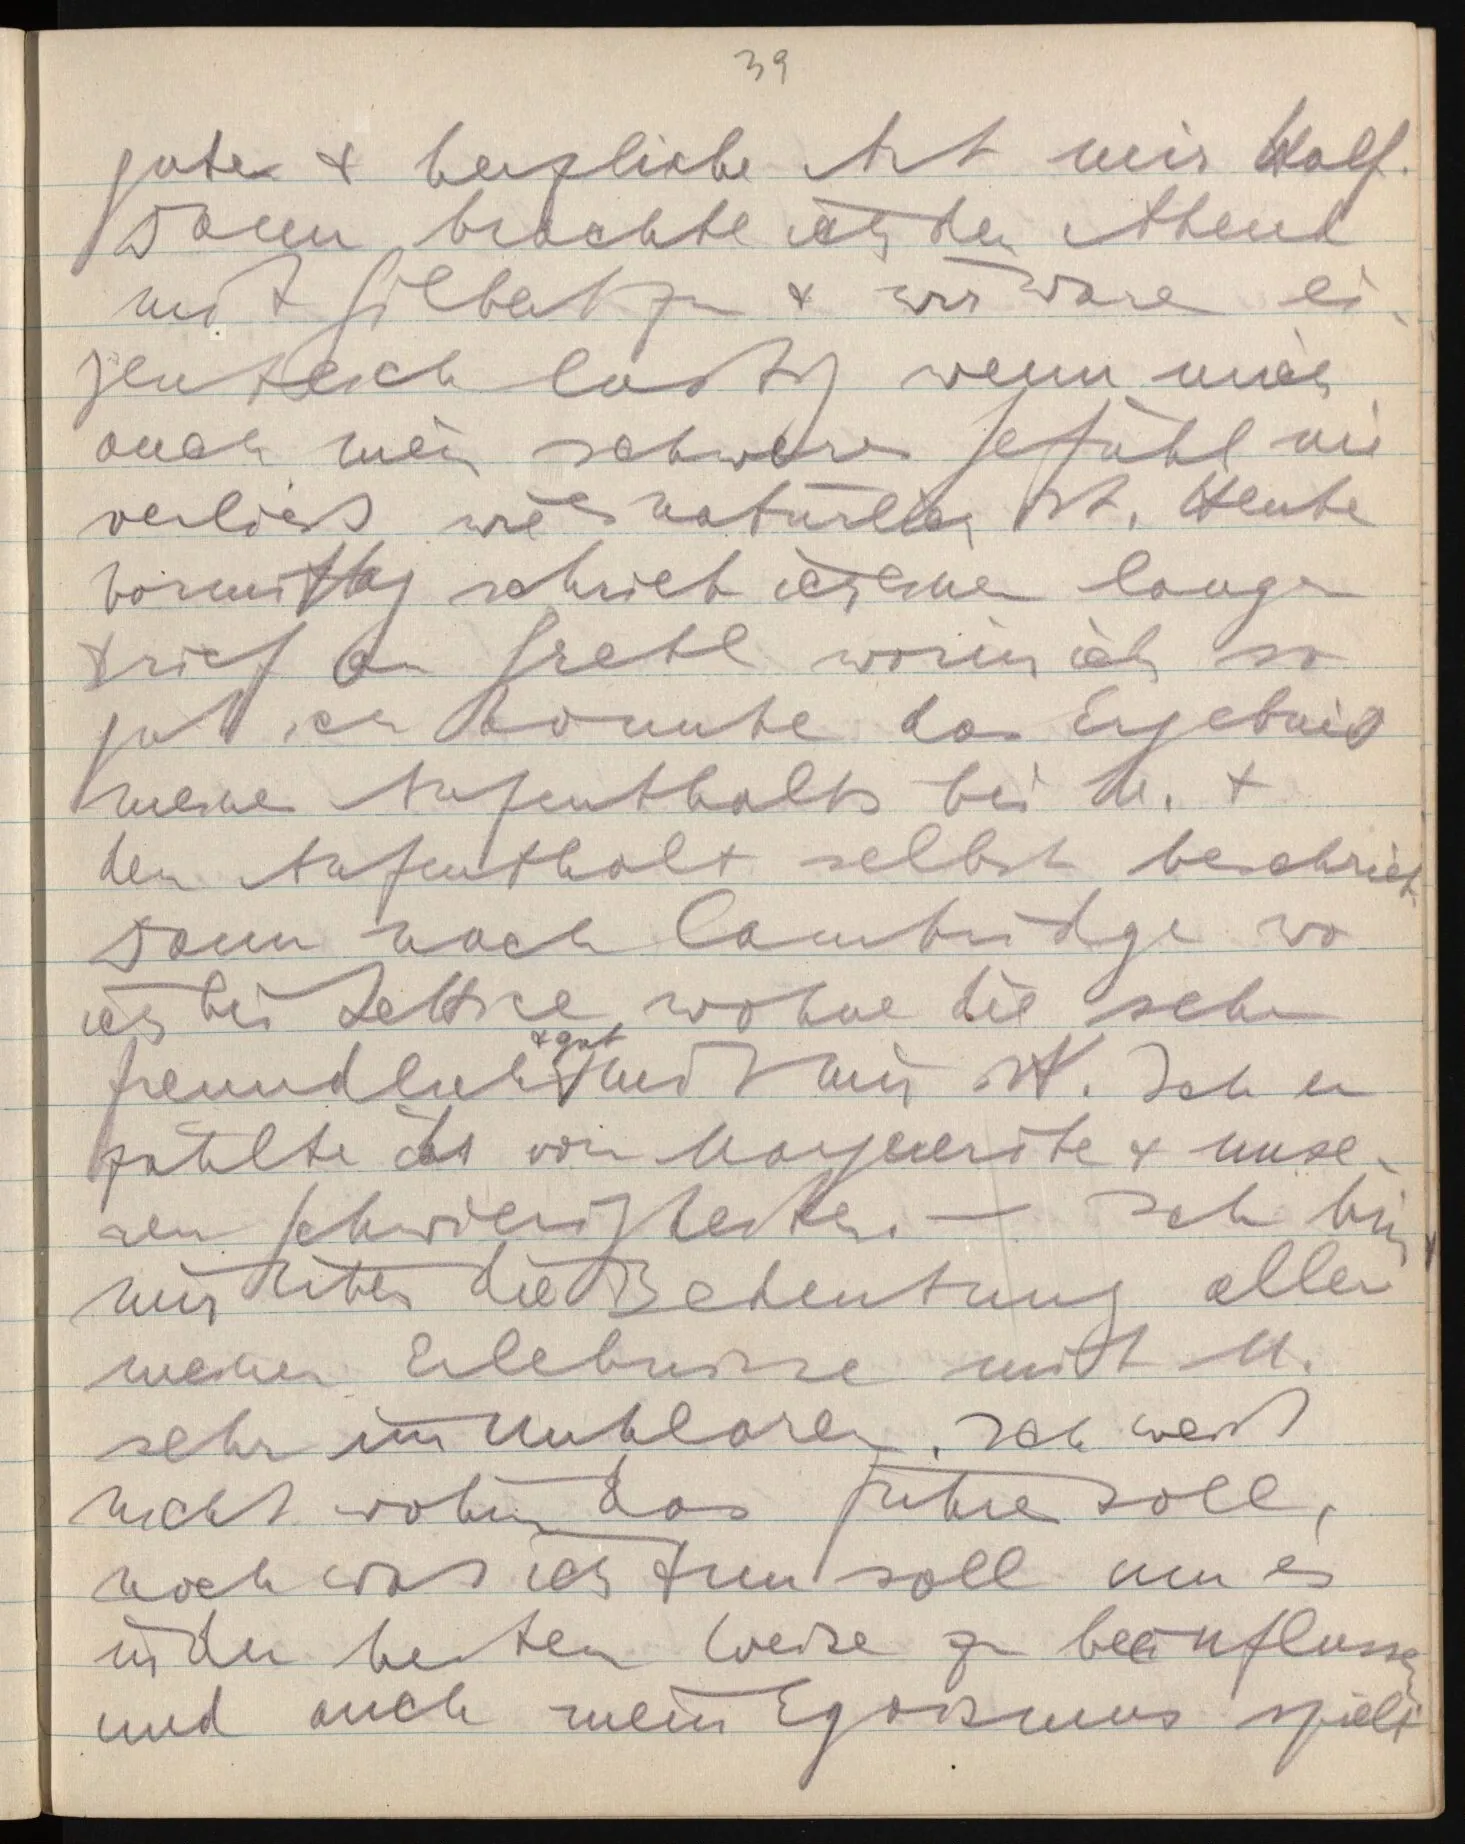 39
gute & herzliche Art mir half.
Dann brachte ich den Abend
mit Gilbert zu & wir waren ei-
gentlich lustig wenn mich
auch mein schweres Gefühl nie
verließ wie es natürlich ist. Heute
Vormittag schrieb ich einen langen
Brief an Gretl worin ich so
gut ich konnte das Ergebnis
meines Aufenthalts bei M. &
den Aufenthalt selbst beschrieb.
Dann nach Cambridge wo
ich bei Lettice wohne die sehr
freundlich & gut mit mir ist. Ich er
zählte ihr von Marguerite & unse-
ren Schwierigkeiten. — Ich bin
mir über die Bedeutung aller
meiner Erlebnisse mit M.
sehr im Unklaren. Ich weiß
nicht wohin das führen soll,
noch was ich tun soll um es
in der besten Weise zu beeinflussen
und auch mein Egoismus spielt